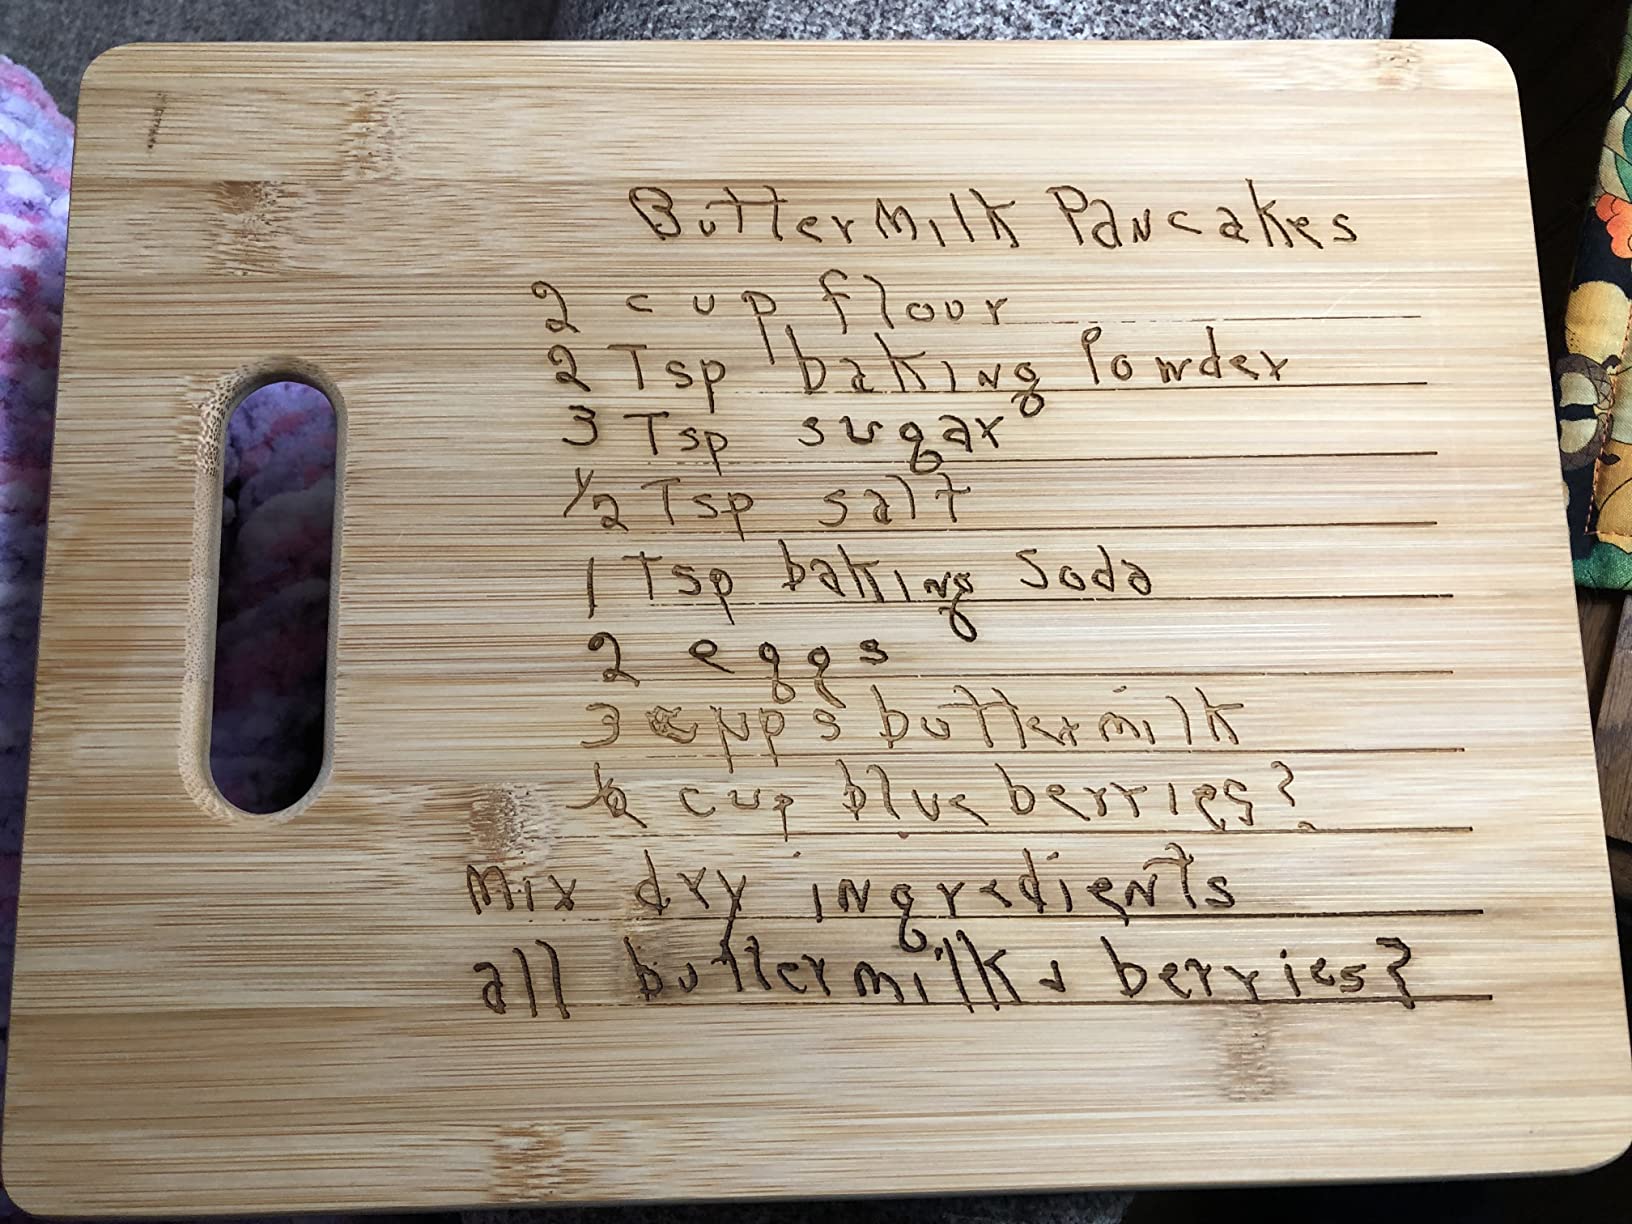 Buttermilk Pancakes
2 cup flour
2 Tsp baking Powder
3 Tsp sugar
1/2 Tsp salt
1 Tsp baking Soda
2 eggs
3 cups buttermilk
1/2 cup blueberries?
Mix dry ingredients
all buttermilk & berries?